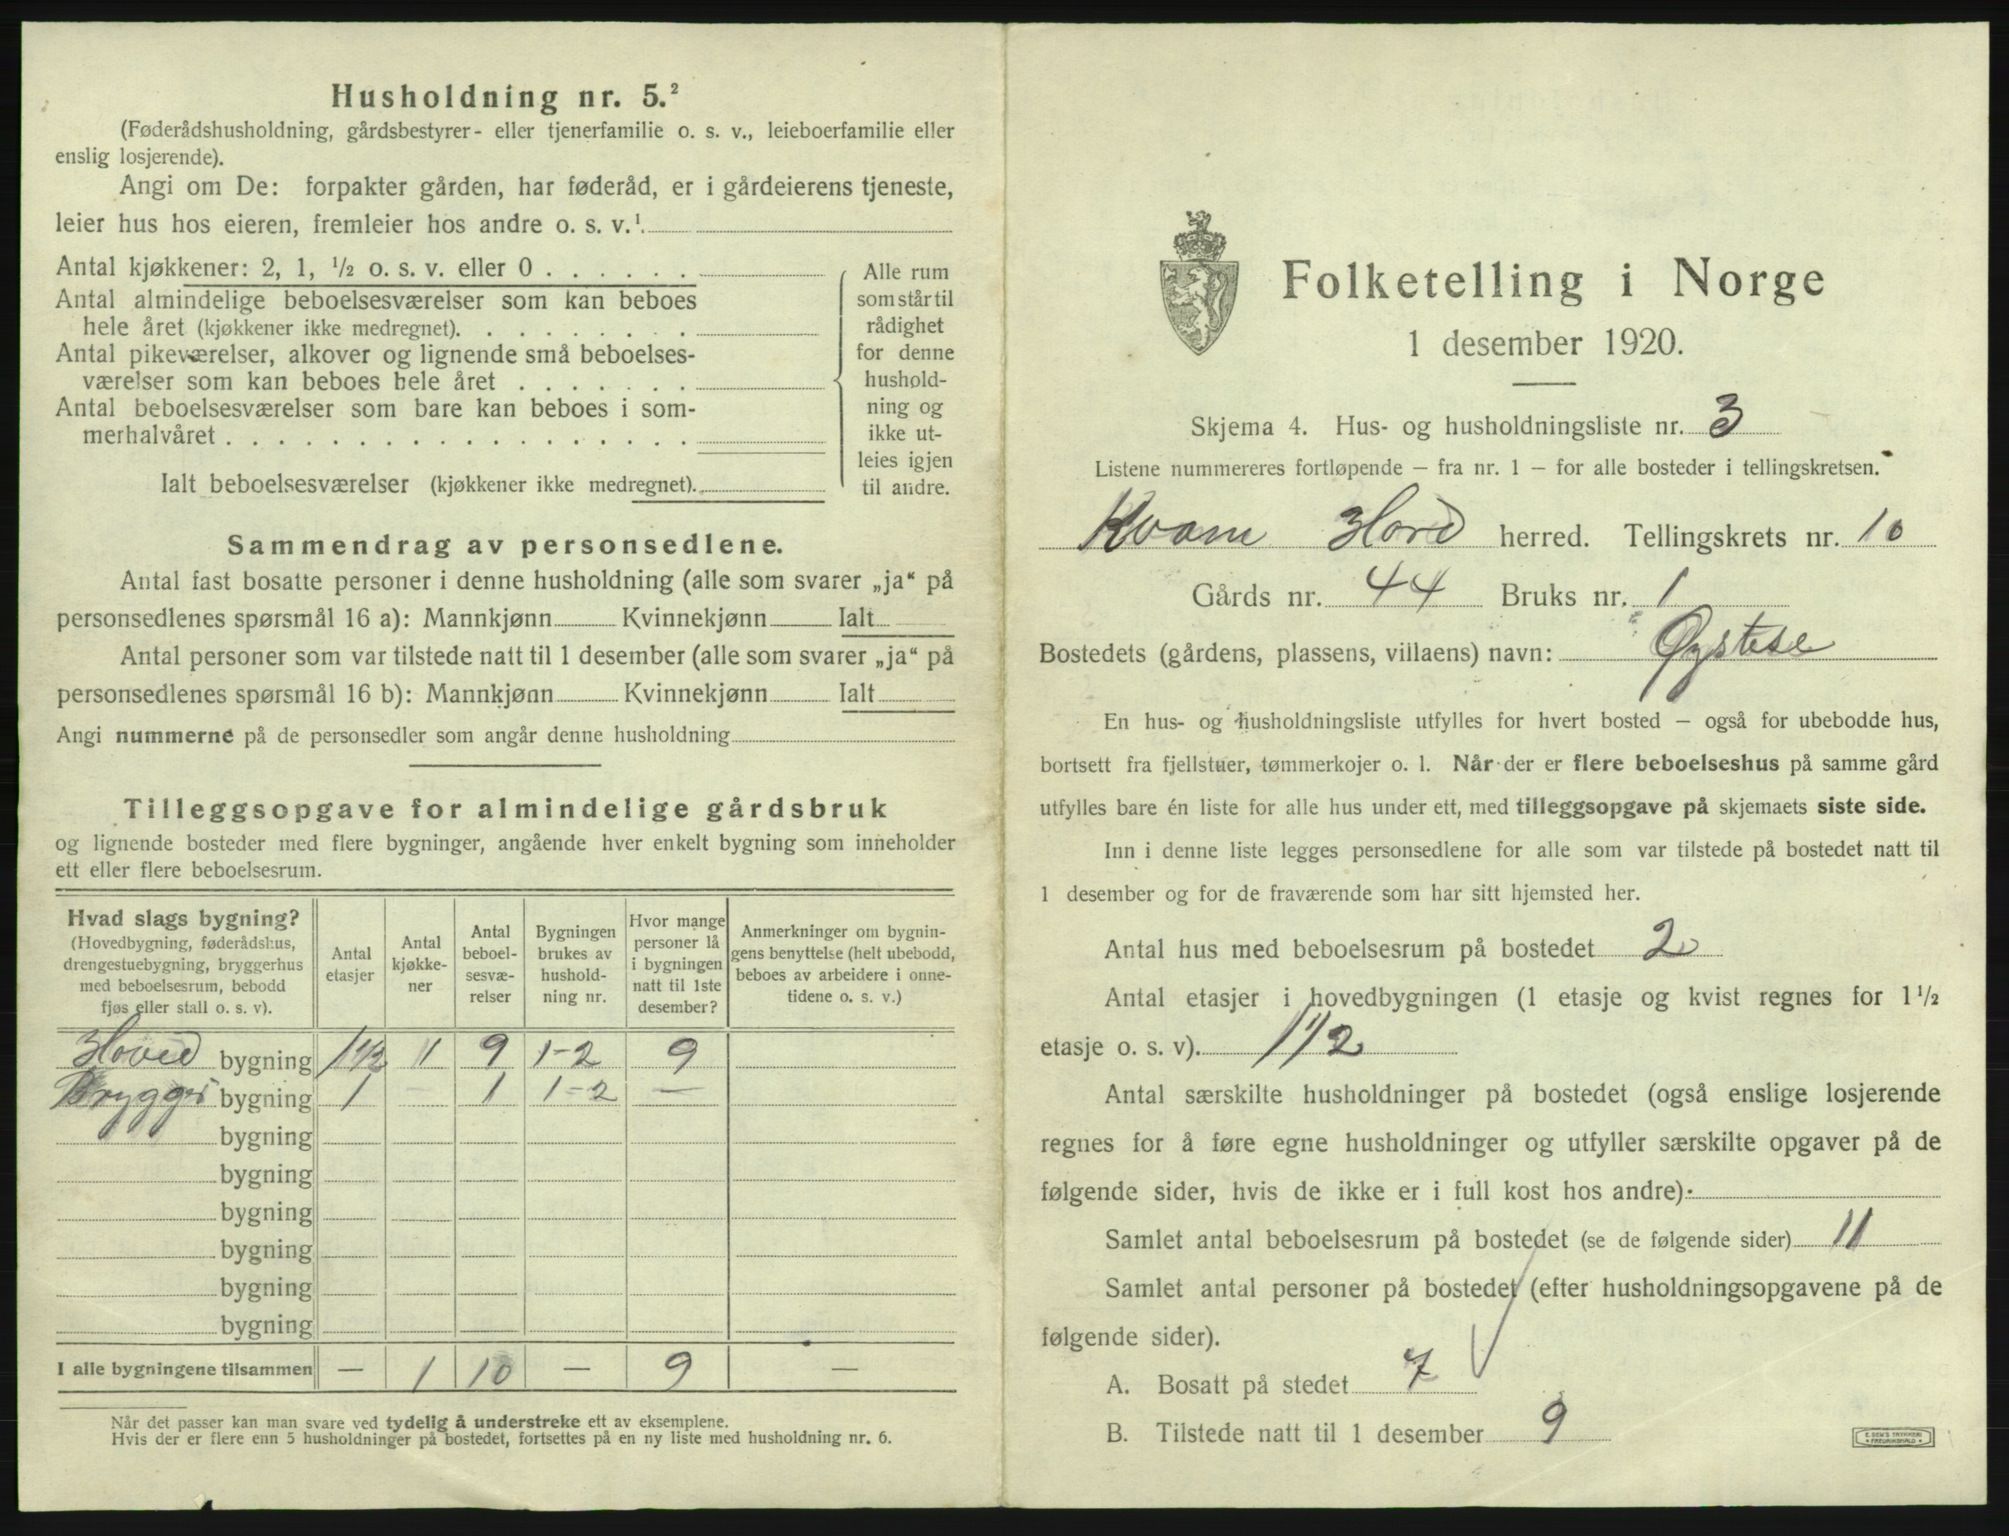 Husholdning nr. 5.²
(Føderådshusholdning, gårdsbestyrer- eller tjenerfamilie o. s. v., leieboerfamilie eller
enslig losjerende).
Angi om De: forpakter gården, har føderåd, er i gårdeierens tjeneste,
leier hus hos eieren, fremleier hos andre o. s. v.¹.
Antal kjøkkener: 2, 1, ½ o. s. v. eller 0 . . . . . .
Antal almindelige beboelsesværelser som kan beboes
hele året (kjøkkener ikke medregnet). . . . . . . . .
Antal pikeværelser, alkover og lignende små beboelses-
værelser som kan beboes hele året . . . . . . .
Antal beboelsesværelser som bare kan beboes i som-
merhalvåret . . . . . . . . . . . . . . . . . .
Ialt beboelsesværelser (kjøkkener ikke medregnet).
Alle rum
som står til
rådighet
for denne
hushold-
ning og
ikke ut-
leies igjen
til andre.
Sammendrag av personsedlene.
Antal fast bosatte personer i denne husholdning (alle som svarer „ja“ på
personsedlenes spørsmål 16 a): Mannkjønn Kvinnekjønn Ialt
Antal personer som var tilstede natt til 1 desember (alle som svarer „ja“ på
personsedlenes spørsmål 16 b): Mannkjønn Kvinnekjønn Ialt
Angi nummerne på de personsedler som angår denne husholdning
Tilleggsopgave for almindelige gårdsbruk
og lignende bosteder med flere bygninger, angående hver enkelt bygning som inneholder
ett eller flere beboelsesrum.
Hvad slags bygning?
(Hovedbygning, føderådshus,
drengestuebygning, bryggerhus
med beboelsesrum, bebodd
fjøs eller stall o. s. v).
Antal
etasjer
Antal
kjøkke-
ner
Antal
beboel-
sesvæ-
relser
Bygningen
brukes av
hushold-
ning nr.
Hvor mange
personer lå
i bygningen
natt til 1ste
desember?
Anmerkninger om bygnin-
gens benyttelse (helt ubebodd,
beboes av arbeidere i onne-
tidene o. s. v.)
Hoved bygning 1½ 1 9 1-2 9
Brygger bygning 1 - 1 1-2 —
bygning
bygning
bygning
bygning
bygning
bygning
I alle bygningene tilsammen — 1 10 — 9 —
Når det passer kan man svare ved tydelig å understreke ett av eksemplene.
Hvis der er flere enn 5 husholdninger på bostedet, fortsettes på en ny liste med husholdning nr. 6.
Folketelling i Norge
1 desember 1920.
Skjema 4. Hus- og husholdningsliste nr. 3
Listene nummereres fortløpende — fra nr. 1 — for alle bosteder i tellingskretsen.
Kvam Hord herred. Tellingskrets nr. 10
Gårds nr. 44 Bruks nr. 1
Bostedets (gårdens, plassens, villaens) navn: Øystese
En hus- og husholdningsliste utfylles for hvert bosted — også for ubebodde hus,
bortsett fra fjellstuer, tømmerkojer o. l. Når der er flere beboelseshus på samme gård
utfylles bare én liste for alle hus under ett, med tilleggsopgave på skjemaets siste side.
Inn i denne liste legges personsedlene for alle som var tilstede på bostedet natt til
1 desember og for de fraværende som har sitt hjemsted her.
Antal hus med beboelsesrum på bostedet 2
Antal etasjer i hovedbygningen (1 etasje og kvist regnes for 1½
etasje o. s. v). 1½
Antal særskilte husholdninger på bostedet (også enslige losjerende
regnes for å føre egne husholdninger og utfyller særskilte opgaver på de
følgende sider, hvis de ikke er i full kost hos andre).
Samlet antal beboelsesrum på bostedet (se de følgende sider) 11
Samlet antal personer på bostedet (efter husholdningsopgavene på de
følgende sider).
A. Bosatt på stedet 7
B. Tilstede natt til 1 desember 9
E. SEM'S TRYKKERI
FREDRIKSHALD